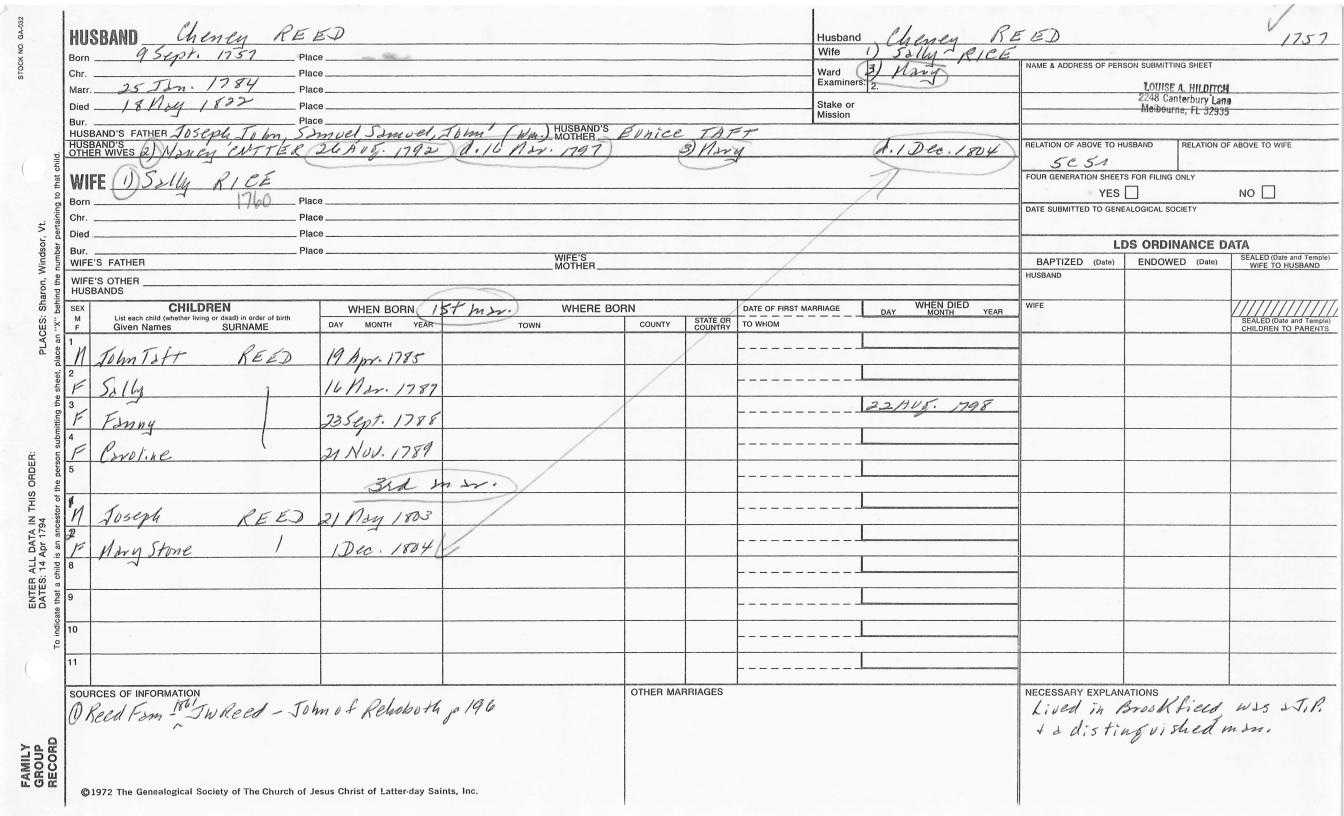 STOCK NO. GA-032
HUSBAND Cheney REED
Born 9 Sept. 1757 Place
Chr. Place
Marr. 25 Jan. 1784 Place
Died 18 May 1822 Place
Bur. Place
HUSBAND'S FATHER Joseph John, Samuel Samuel, John' (Wm.) HUSBAND'S MOTHER Eunice TAFT
HUSBAND'S OTHER WIVES 2) Nancy CUTTER 26 Aug. 1792 d. 16 Mar. 1797 3) Mary d. 1 Dec. 1804
Husband Cheney REED 1757
Wife 1) Sally RICE
3) Mary
Ward Examiners: 2.
Stake or Mission
NAME & ADDRESS OF PERSON SUBMITTING SHEET
LOUISE A. HILDITCH
2248 Canterbury Lane
Melbourne, FL 32935
RELATION OF ABOVE TO HUSBAND RELATION OF ABOVE TO WIFE
5C 5R
FOUR GENERATION SHEETS FOR FILING ONLY
YES NO
DATE SUBMITTED TO GENEALOGICAL SOCIETY
WIFE 1) Sally RICE
Born 1760 Place
Chr. Place
Died Place
Bur. Place
WIFE'S FATHER WIFE'S MOTHER
WIFE'S OTHER HUSBANDS
LDS ORDINANCE DATA
BAPTIZED (Date) ENDOWED (Date) SEALED (Date and Temple) WIFE TO HUSBAND
HUSBAND
WIFE
SEALED (Date and Temple) CHILDREN TO PARENTS
SEX M F
CHILDREN
List each child (whether living or dead) in order of birth
Given Names SURNAME
WHEN BORN 1st mar. WHERE BORN
DAY MONTH YEAR TOWN COUNTY STATE OR COUNTRY
DATE OF FIRST MARRIAGE
TO WHOM
WHEN DIED
DAY MONTH YEAR
1 M John Taft REED 19 Apr. 1785
2 F Sally 16 Mar. 1787
3 F Fanny 23 Sept. 1788 22 Aug. 1798
4 F Caroline 21 Nov. 1789
5 3rd mar.
1 M Joseph REED 21 May 1803
2 F Mary Stone 1 Dec. 1804
8
9
10
11
SOURCES OF INFORMATION
① Reed Fam - 1861 JW Reed - John of Rehoboth p 196
OTHER MARRIAGES
NECESSARY EXPLANATIONS
Lived in Brookfield, was a J.P.
+ a distinguished man.
©1972 The Genealogical Society of The Church of Jesus Christ of Latter-day Saints, Inc.
FAMILY GROUP RECORD
ENTER ALL DATA IN THIS ORDER:
DATES: 14 Apr 1794 PLACES: Sharon, Windsor, Vt.
To indicate that a child is an ancestor of the person submitting the sheet, place an "X" behind the number pertaining to that child.